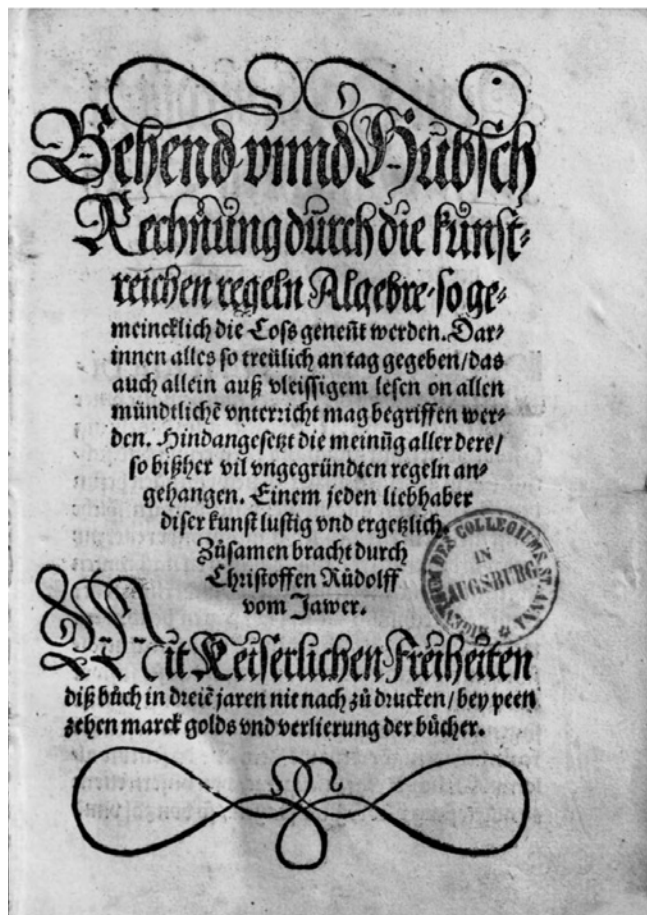 Behend vnnd Hubsch
Rechnung durch die kunst⸗
reichen regeln Algebre/so ge⸗
meincklich die Coss geneñt werden. Dar⸗
innen alles so treülich an tag gegeben/das
auch allein auß vleissigem lesen on allen
mündtlichē vnterricht mag begriffen wer⸗
den. Hindangesetzt die meinūg aller dere/
so bißher vil vngegründten regeln an⸗
gehangen. Einem jeden liebhaber
diser kunst lustig vnd ergetzlich.
Zůsamen bracht durch
Christoffen Růdolff
vom Jawer.
EIGENTHUM DES COLLEGIUMS ST. ANNA
IN
AUGSBURG
Mit Keiserlichen Freiheiten
diß bůch in dreiē jaren nit nach zů drucken/bey peen
zehen marck golds vnd verlierung der bücher.